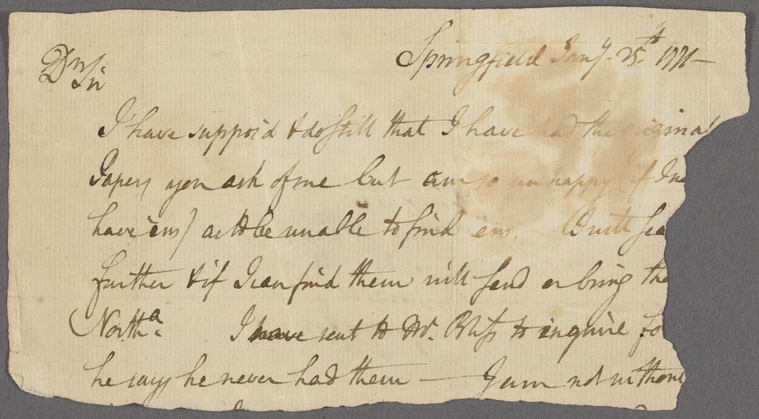 Springfield Jany. 25th 1771—
Dr Sir
I have suppos'd & do still that I have had the original
Papers you ask of me but am so unhappy (if I
have 'em) as to be unable to find 'em.
further & if I can find them will send or bring the
Northa. I have sent to Mr. Bliss to inquire fo
he says he never had them — I am not without